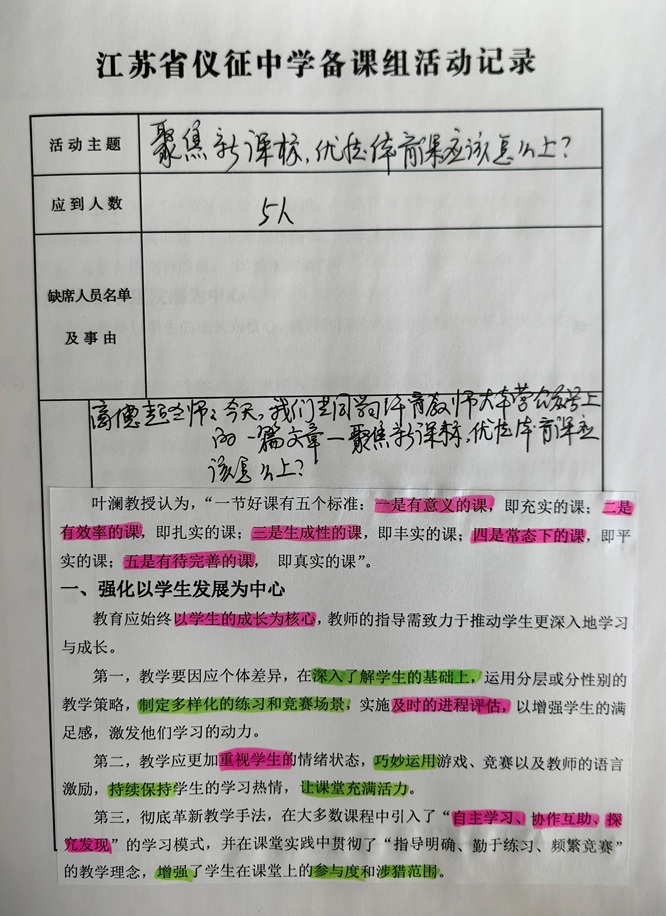 江苏省仪征中学备课组活动记录
活动主题
聚焦新课标，优质体育课应该怎么上？
应到人数
5人
缺席人员名单
及事由
高德超老师：今天，我们共同学习体育教师大本营公众号上
的一篇文章—聚焦新课标，优质体育课应
该怎么上？
叶澜教授认为，“一节好课有五个标准：一是有意义的课，即充实的课；二是
有效率的课，即扎实的课；三是生成性的课，即丰实的课；四是常态下的课，即平
实的课；五是有待完善的课， 即真实的课”。
一、强化以学生发展为中心
教育应始终以学生的成长为核心，教师的指导需致力于推动学生更深入地学习
与成长。
第一，教学要因应个体差异，在深入了解学生的基础上，运用分层或分性别的
教学策略，制定多样化的练习和竞赛场景，实施及时的进程评估，以增强学生的满
足感，激发他们学习的动力。
第二，教学应更加重视学生的情绪状态，巧妙运用游戏、竞赛以及教师的语言
激励，持续保持学生的学习热情，让课堂充满活力。
第三，彻底革新教学手法，在大多数课程中引入了“自主学习、协作互助、探
究发现”的学习模式，并在课堂实践中贯彻了“指导明确、勤于练习、频繁竞赛”
的教学理念，增强了学生在课堂上的参与度和涉猎范围。